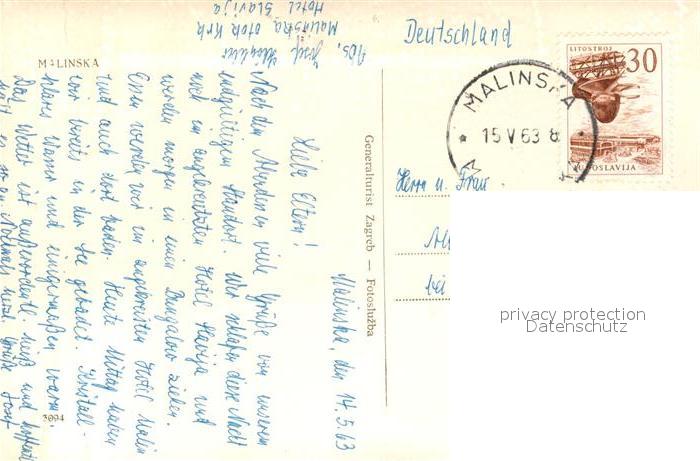 MALINSKA
Abs. Josef
Malinska otok Krk
Hotel Slavija
Deutschland
LITOSTROJ
30
JUGOSLAVIJA
MALINSKA
15 V 63 8
Malinska, den 14.5.63
Liebe Eltern!
Nach den Abenden viele Grüße von unserem
endgültigen Standort. Wir schlafen diese Nacht
noch im Hotel Slavija und
werden morgen in einen Bungalow ziehen.
Essen werden wir im Hotel Malin
und auch dort baden. Heute Mittag haben
wir bereits in der See gebadet. Kristall-
klares Wasser und einigermaßen warm.
Das Wetter ist außerordentl. heiß und hoffentl.
Nochmals herzl. Grüße Josef
Generalturist Zagreb — Fotoslužba
Herrn u. Frau
bei
3094
privacy protection
Datenschutz